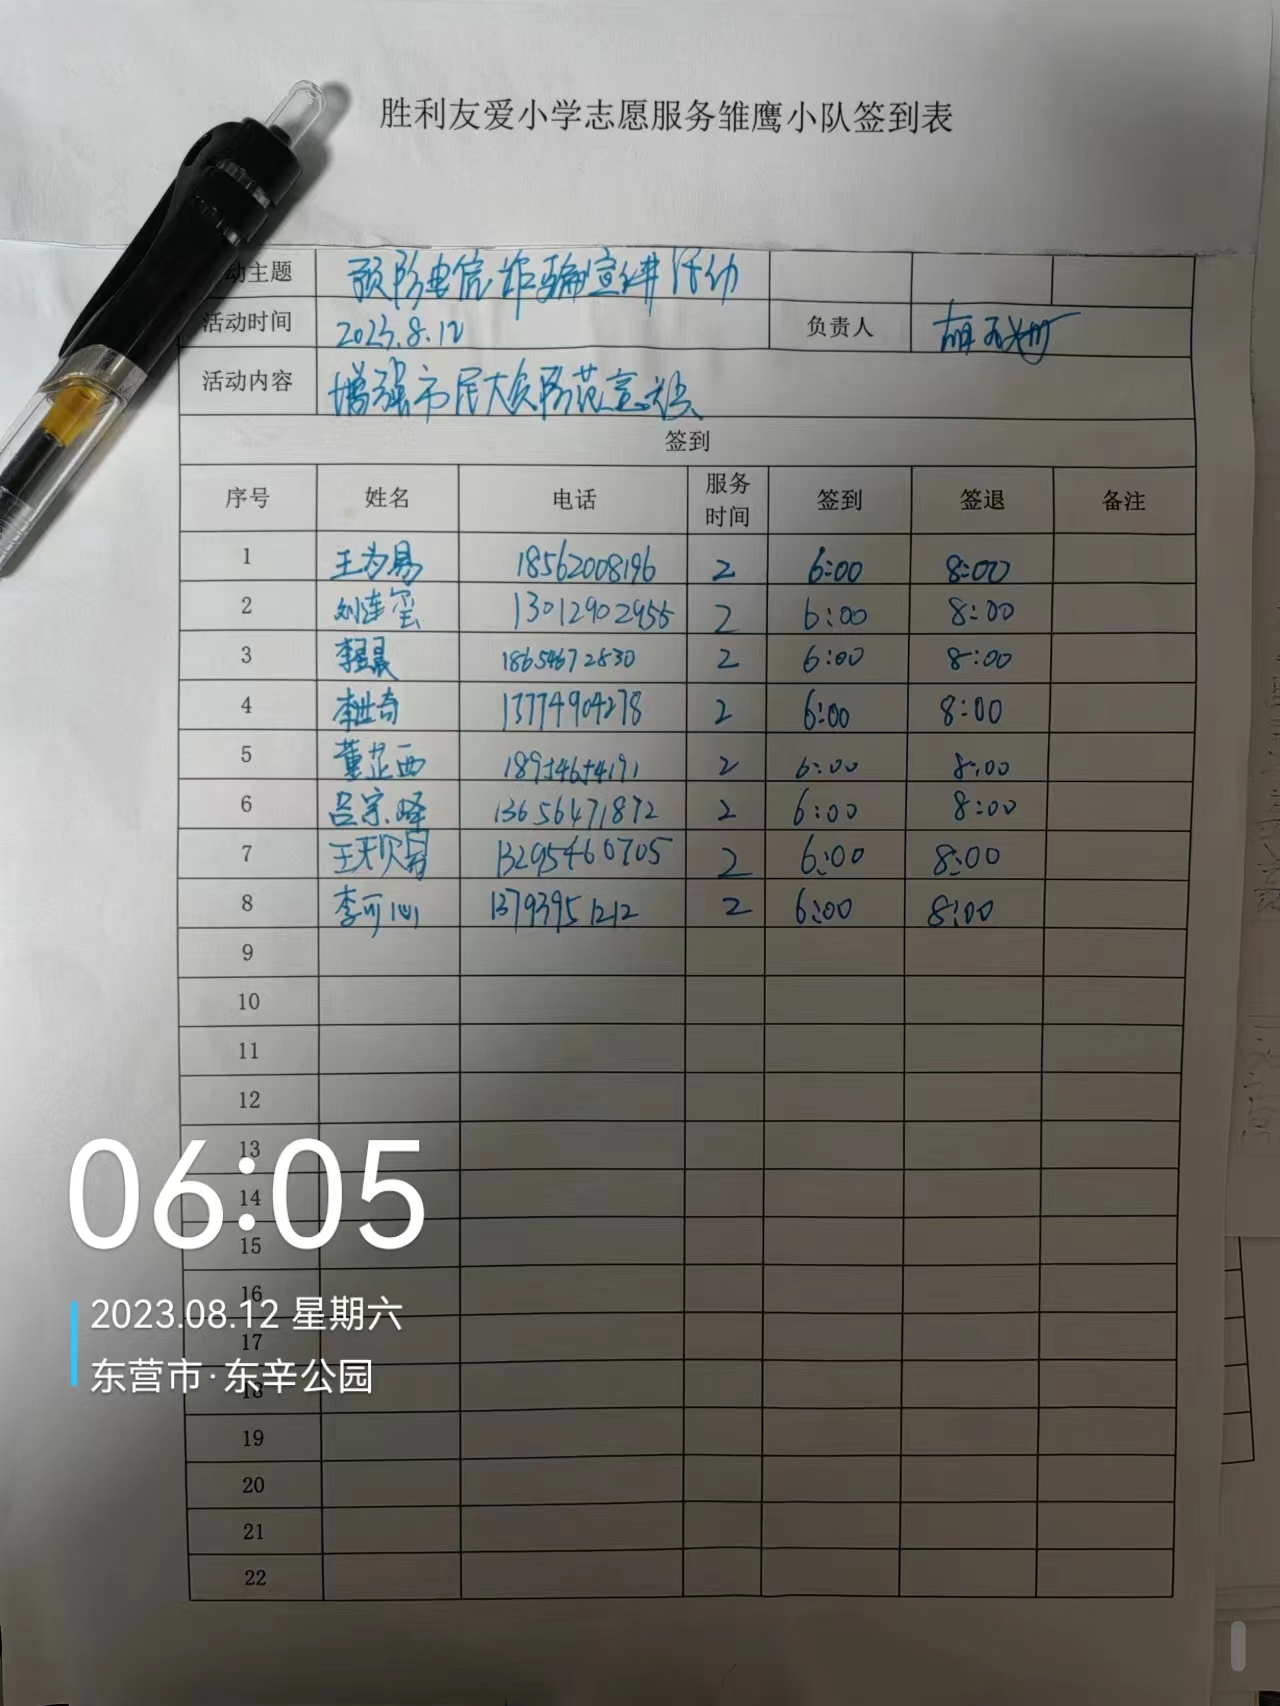 胜利友爱小学志愿服务雏鹰小队签到表
动主题 预防电信诈骗宣讲活动
活动时间 2023.8.12 负责人
活动内容 增强市民大众防范意识
签到
序号 姓名 电话 服务时间 签到 签退 备注
1 王为易 18562008196 2 6:00 8:00
2 刘连玺 13012902955 2 6:00 8:00
3 18654672830 2 6:00 8:00
4 李世奇 13774904278 2 6:00 8:00
5 董芷西 18954654191 2 6:00 8:00
6 吕宗峄 13656471872 2 6:00 8:00
7 13295460705 2 6:00 8:00
8 李可心 13793951212 2 6:00 8:00
9
10
11
12
13
14
15
16
17
18
19
20
21
22
06:05
2023.08.12 星期六
东营市·东辛公园